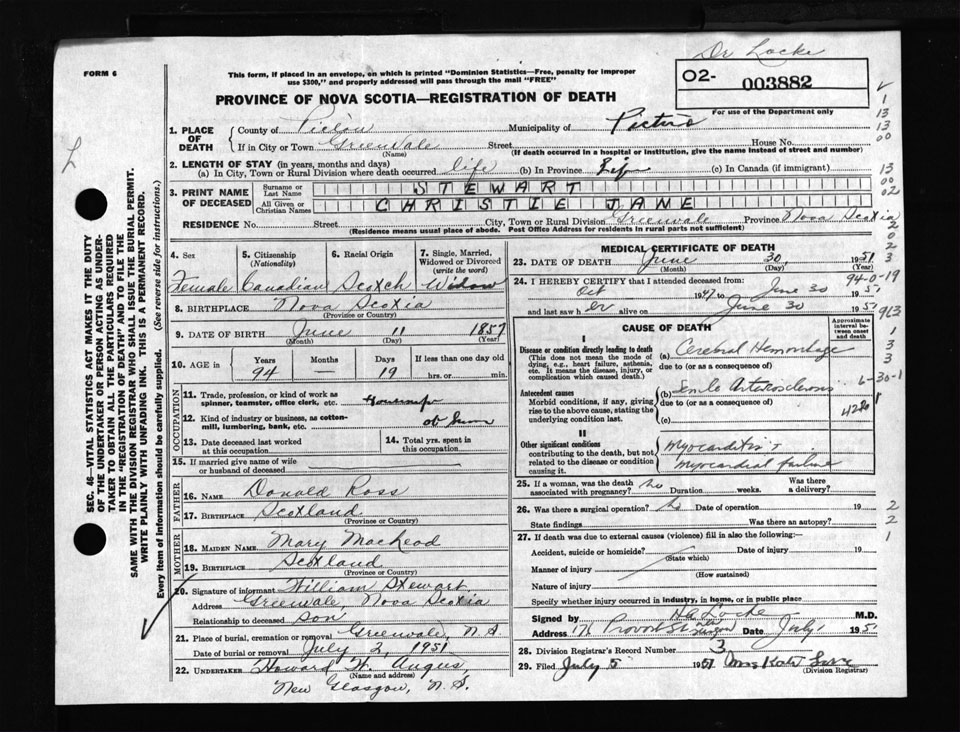 Dr Locke
FORM 6
This form, if placed in an envelope, on which is printed "Dominion Statistics—Free, penalty for improper
use $300," and properly addressed will pass through the mail "FREE"
O2- 003882
PROVINCE OF NOVA SCOTIA—REGISTRATION OF DEATH
For use of the Department only
1. PLACE OF DEATH
County of Pictou Municipality of Pictou
If in City or Town Greenvale Street House No.
(Name) (If death occurred in a hospital or institution, give the name instead of street and number)
2. LENGTH OF STAY (in years, months and days)
(a) In City, Town or Rural Division where death occurred life (b) In Province Life (c) In Canada (if immigrant)
3. PRINT NAME OF DECEASED
Surname or Last Name STEWART
All Given or Christian Names CHRISTIE JANE
RESIDENCE No. Street City, Town or Rural Division Greenvale Province Nova Scotia
(Residence means usual place of abode. Post Office Address for residents in rural parts not sufficient)
4. Sex 5. Citizenship (Nationality) 6. Racial Origin 7. Single, Married, Widowed or Divorced (write the word)
Female Canadian Scotch Widow
8. BIRTHPLACE Nova Scotia
(Province or Country)
9. DATE OF BIRTH June 11 1857
(Month) (Day) (Year)
10. AGE in Years Months Days If less than one day old
94 — 19 hrs. or min.
OCCUPATION
11. Trade, profession, or kind of work as
spinner, teamster, office clerk, etc.
12. Kind of industry or business, as cotton-
mill, lumbering, bank, etc. at home
13. Date deceased last worked
at this occupation
14. Total yrs. spent in
this occupation
15. If married give name of wife
or husband of deceased
FATHER
16. NAME Donald Ross
17. BIRTHPLACE Scotland
(Province or Country)
MOTHER
18. MAIDEN NAME Mary MacLeod
19. BIRTHPLACE Scotland
(Province or Country)
20. Signature of informant William Stewart
Address Greenvale, Nova Scotia
Relationship to deceased son
21. Place of burial, cremation or removal Greenvale, N.S.
Date of burial or removal July 2, 1951
22. UNDERTAKER Howard W. Angus,
(Name and address)
New Glasgow, N.S.
MEDICAL CERTIFICATE OF DEATH
23. DATE OF DEATH June 30, 1951
(Month) (Day) (Year)
24. I HEREBY CERTIFY that I attended deceased from:
Oct 1947 to June 30 1951
and last saw her alive on June 30 1951
CAUSE OF DEATH
Approximate interval between onset and death
I
Disease or condition directly leading to death
(This does not mean the mode of
dying, e.g., heart failure, asthenia,
etc. It means the disease, injury, or
complication which caused death.)
(a) Cerebral Hemorrhage
due to (or as a consequence of)
Antecedent causes
Morbid conditions, if any, giving
rise to the above cause, stating the
underlying condition last.
(b) Senile Arteriosclerosis
due to (or as a consequence of)
(c)
II
Other significant conditions
contributing to the death, but not
related to the disease or condition
causing it.
Myocarditis
Myocardial failure
25. If a woman, was the death
associated with pregnancy? No Duration weeks. Was there
a delivery?
26. Was there a surgical operation? No Date of operation 19
State findings Was there an autopsy?
27. If death was due to external causes (violence) fill in also the following:—
Accident, suicide or homicide? Date of injury 19
(State which)
Manner of injury
(How sustained)
Nature of injury
Specify whether injury occurred in industry, in home, or in public place
Signed by H.R. Locke M.D.
Address 176 Provost St. New Glasgow Date July 1951
28. Division Registrar's Record Number 3
29. Filed July 5 1951
(Division Registrar)
SEC. 46—VITAL STATISTICS ACT MAKES IT THE DUTY
OF THE UNDERTAKER OR PERSON ACTING AS UNDER-
TAKER TO OBTAIN ALL THE PARTICULARS REQUIRED
IN THE "REGISTRATION OF DEATH" AND TO FILE THE
SAME WITH THE DIVISION REGISTRAR WHO SHALL ISSUE THE BURIAL PERMIT.
WRITE PLAINLY WITH UNFADING INK. THIS IS A PERMANENT RECORD.
Every item of information should be carefully supplied. (See reverse side for instructions.)
1
13
13
00
13
00
02
2
0
2
3
94-0-19
913
1
3
3
6-30-1
2
2
1